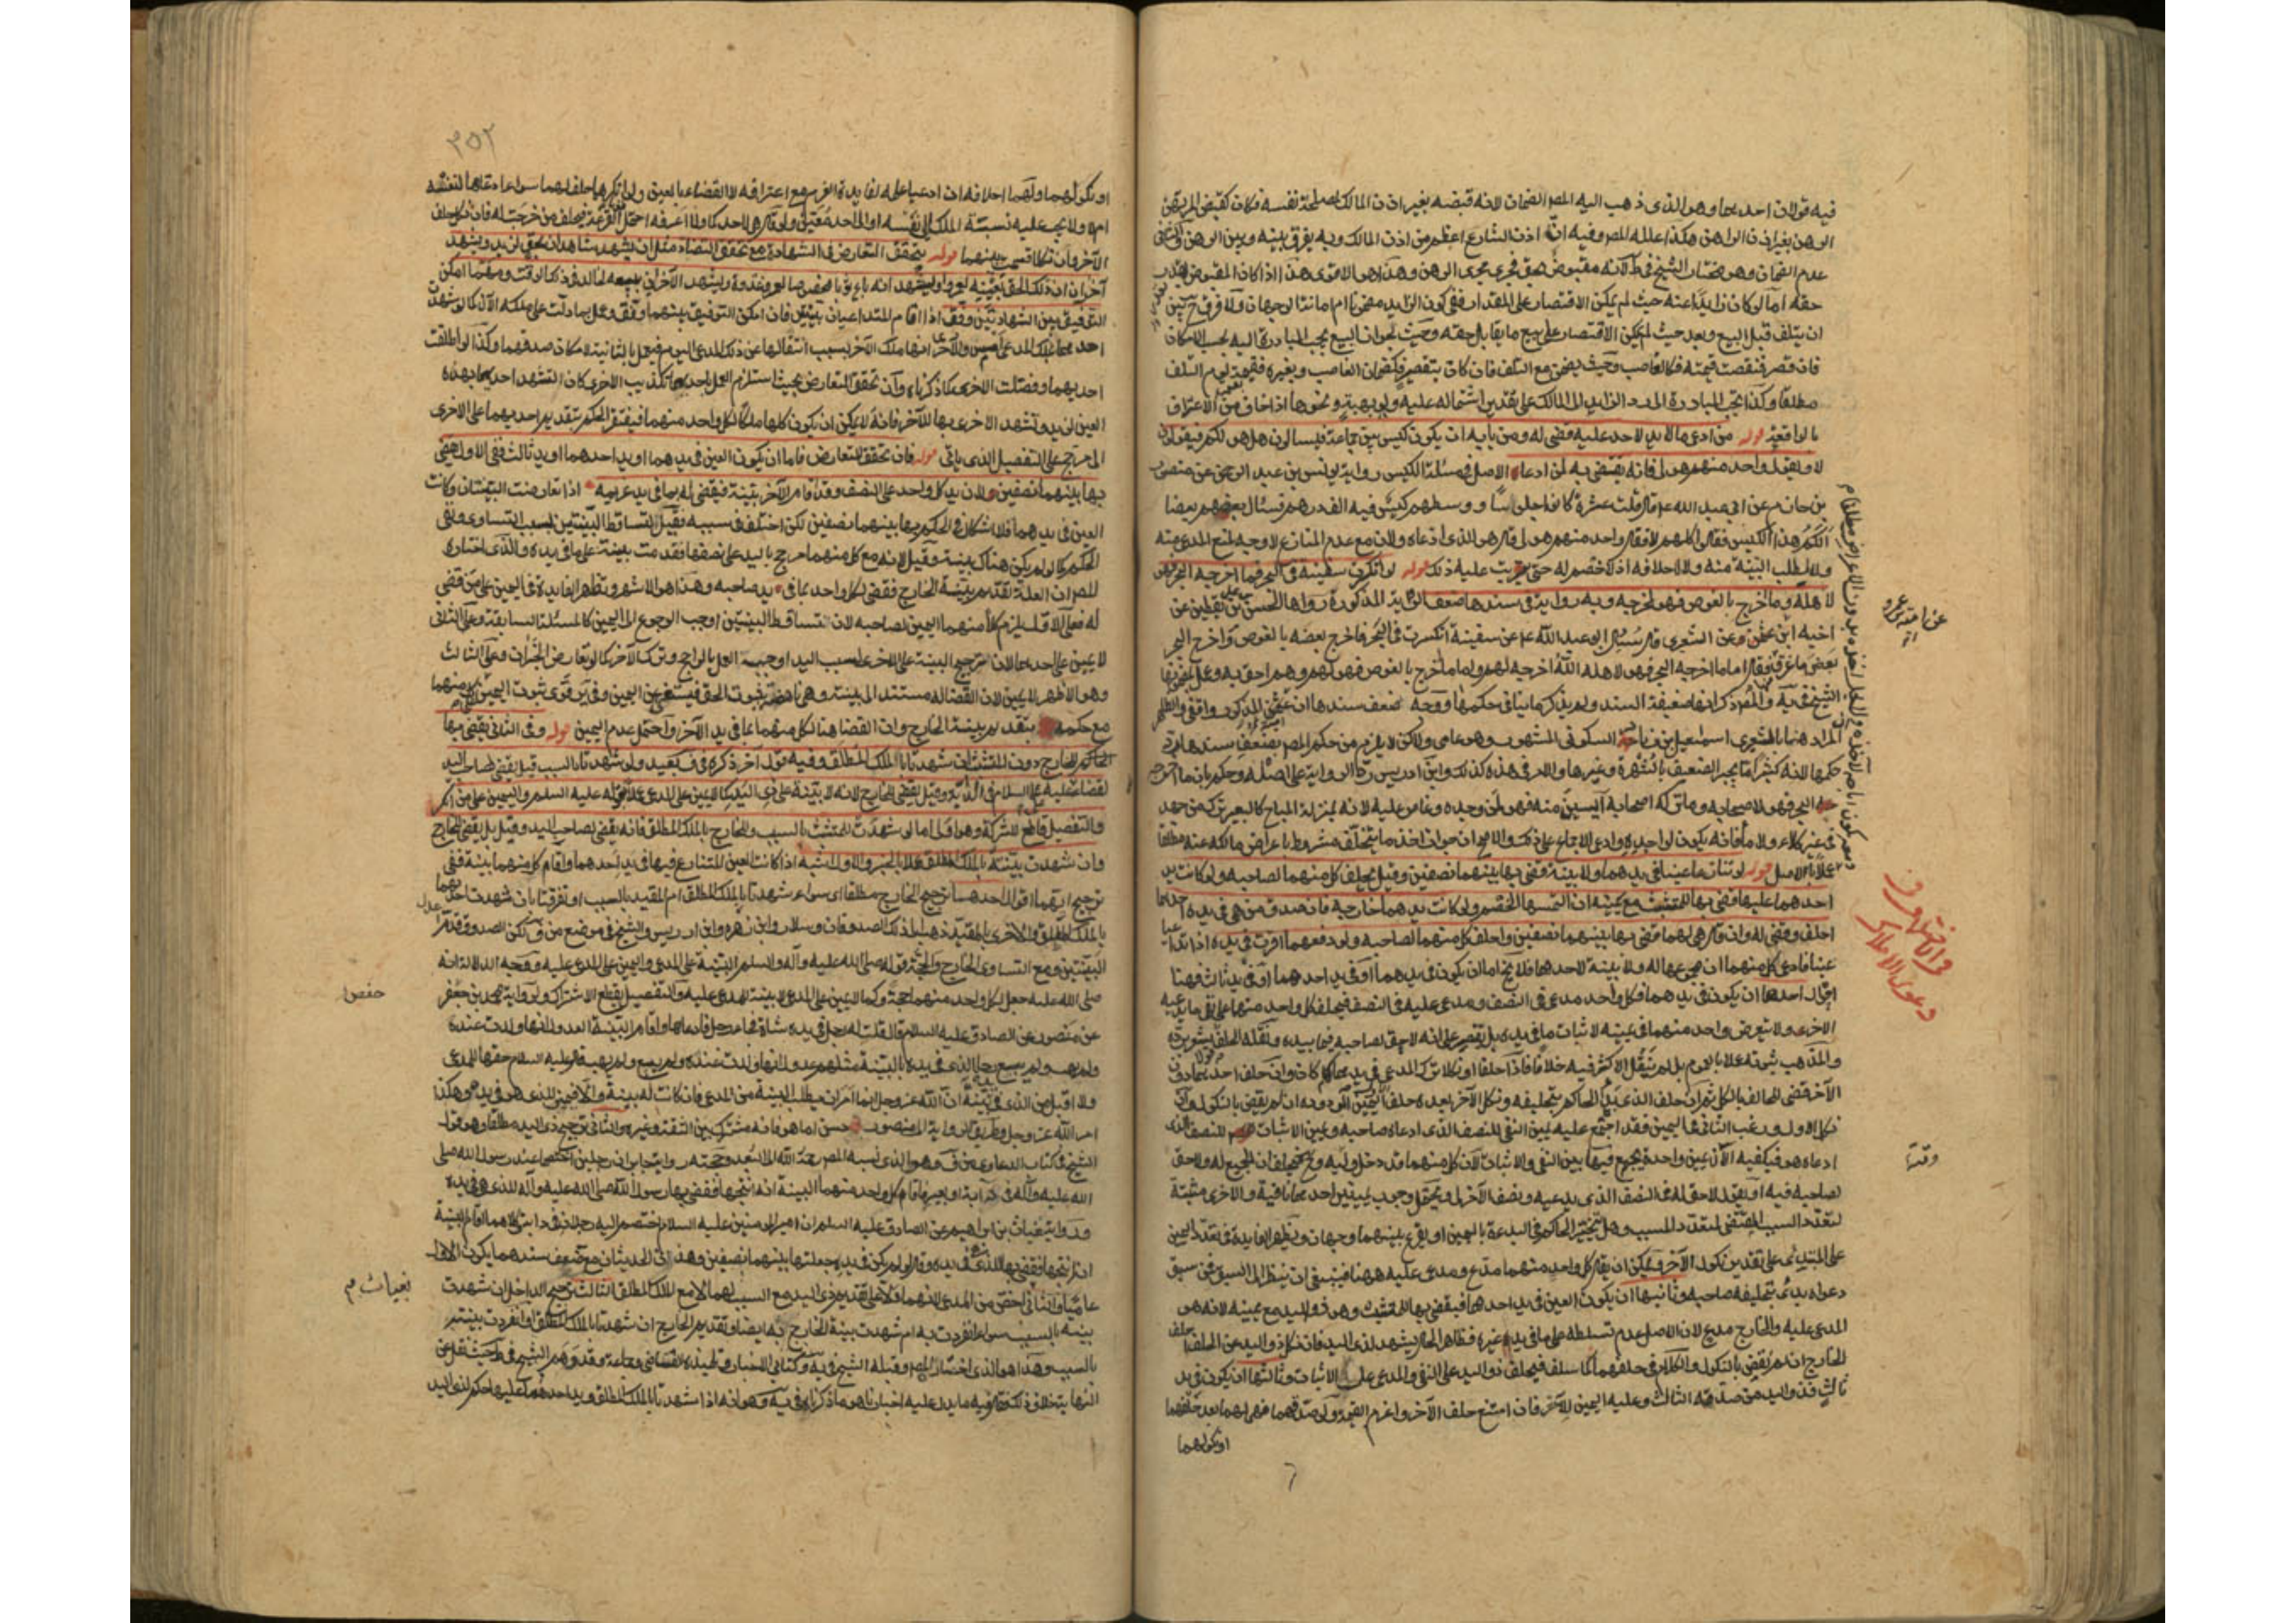 فيه قولان احدهما وهو الذي ذهب اليه المصر الضمان لانه قبضه بغير اذن المالك لمصلحة نفسه فكان كقبض المرتهن
الرهن بغير اذن الراهن هكذا علله المصر وفيه ان اذن الشارع اعظم من اذن المالك وبه يفرق بينه وبين الرهن والثاني
عدم الضمان وهو مختار الشيخ في ط لانه مقبوض بحق فجرى مجرى الرهن وهذا هو الاقوى هذا اذا كان المقبوض بقدر
حقه اما لو كان زايدا عنه حيث لم يمكن الاقتصار على المقدار ففي كون الزايد مضمونا ام امانة وجهان ولا فرق ح بين
ان يتلف قبل البيع وبعد حيث لم يمكن الاقتصار على بيع ما يقابل حقه وحيث يجوز له البيع يجب المبادرة اليه بحسب الامكان
فان قصر فنقصت قيمته فكالغاصب وحيث يضمن مع التلف فان كان بتقصير فكضمان الغاصب وبغيره فقيمته يوم التلف
مطلقا وكذا يجب المبادرة الى رد الزايد الى المالك على تقدير اشتماله عليه ولو بهبة ونحوها اذا خاف من الاعتراف
بالواقع قوله من ادعى ما لا يد لاحد عليه قضي له ومن بابه ان يكون كيس بين جماعة فيسالون هل هو لكم فيقولون
لا ويقول واحد منهم هو لي فانه يقضى به لمن ادعاه الاصل في مسئلة الكيس رواية يونس بن عبد الرحمن عن منصور
بن حازم عن ابي عبد الله ع قال قلت عشرة كانوا جلوسا ووسطهم كيس فيه الف درهم فسئال بعضهم بعضا
الكم هذا الكيس فقالوا كلهم لا فقال واحد منهم هو لي قال هو للذي ادعاه ولان مع عدم المنازع لا وجه لمنع المدعي منه
ولا لطلب البينة منه ولا لاحلافه اذ لا خصم له حتى يترتب عليه ذلك قوله لو انكسرت سفينة في البحر فما اخرجه البحر فهو
لاهله وما اخرج بالغوص فهو لمخرجه وبه رواية في سندها ضعف الرواية المذكورة رواها الحسن بن علي بن يقطين عن
اخيه ابن عثمن وعن الشعيري قال سئل ابو عبد الله ع عن سفينة انكسرت في البحر فاخرج بعضه بالغوص واخرج البحر
بعض ما غرق فقال اما ما اخرجه البحر فهو لاهله الله اخرجه لهم واما ما اخرج بالغوص فهو لهم وهم احق به وعمل بمضمونها
الشيخ في يه والمصر ذكر انها ضعيفة السند ولم يذكر ما ينافي حكمها ووجه ضعف سندها ان
المراد هنا بالشعيري اسمعيل بن زياد السكوني المشهور وهو عامي ولكن لا يلزم من حكم المصر بضعف سندها رد
حكمها لانه كثيرا ما يجبر الضعيف بالشهرة وغيرها والامر في هذه كذلك وابن ادريس رد الرواية على اصله وحكم بان ما اخرجه
البحر فهو لاصحابه وما تركه اصحابه آيسين منه فهو لمن وجده وغاص عليه لانه بمنزلة المباح كالبعير يترك من جهد
في غير كلاء ولا ماء فانه يكون لواجده وادعى الاجماع على ذلك والاصح ان جواز اخذ ما يتخلف مشروط باعراض مالكه عنه مطلقا
عملا بالاصل قوله لو تنازعا عينا في يدهما ولا بينة قضي بها بينهما نصفين وقيل يحلف كل منهما لصاحبه ولو كانت يد
احدهما عليها قضي بها للمتشبث مع يمينه ان التمسها الخصم ولو كانت يدهما خارجة فان صدق من هي في يده احدهما
احلف وقضي له وان قال هي لهما قضي بها بينهما نصفين واحلف كل منهما لصاحبه ولو دفعهما اقرت في يده اذا تداعيا
عينا فادعى كل منهما ان مجموعها له ولا بينة لاحدهما فلا يخ اما ان يكون في يدهما او في يد احدهما او في يد ثالث فهنا
اقسام احدها ان يكون في يدهما فكل واحد مدعي في النصف ومدعى عليه في النصف فيحلف كل واحد منهما على نفي ما يدعيه
الاخر ولا يتعرض واحد منهما في يمينه لاثبات ما في يده بل يقتصر على انه لا حق لصاحبه فيما بيده
والمذهب ثبوته عملا بالعموم بل لم ينقل الاكثر فيه خلافا فاذا حلفا او نكلا ترك المدعى في يدهما كما كان وان حلف احدهما دون
الآخر قضي للحالف بالكل ثم ان حلف الذي بدا الحاكم بتحليفه ونكل الآخر بعده حلف الاول اليمين المردودة ان لم يقض بالنكول وان
نكل الاول ورغب الثاني في اليمين فقد اجتمع عليه يمين النفي للنصف الذي ادعاه صاحبه ويمين الاثبات للنصف الذي
ادعاه هو فيكفيه الآن يمين واحدة يجمع فيها بين النفي والاثبات لان كل منهما قد دخل وليه وح فيحلف ان الجميع له ولا حق
لصاحبه فيه او يقول لا حق له في النصف الذي يدعيه ونصف الآخر لي ويحتمل وجوب يمينين احدهما نافية والاخرى مثبتة
لتعدد السبب المقتضي لتعدد المسبب وهل يتخير الحاكم في البدءة باليمين او يقرع بينهما وجهان وتظهر الفايدة في تعدد اليمين
على المبتدئ على تقدير نكول الآخر ويمكن ان يقال كل واحد منهما مدع ومدعى عليه ههنا فينبغي ان ينظر الى السبق فمن سبق
دعواه بدئ بتحليفه صاحبه وثانيها ان يكون العين في يد احدهما فيقضى بها للمتشبث وهو ذو اليد مع يمينه لانه هو
المدعى عليه والخارج مدع لان الاصل عدم تسلطه على ما في يد غيره وظاهر الحال يشهد لذي اليد فان نكل ذو اليد عن الحلف حلف
الخارج ان لم نقض بالنكول والكلام في حلفهما كما سلف فيحلف ذو اليد على النفي والمدعي على الاثبات وثالثها ان يكون في يد
ثالث فذو اليد من صدقه الثالث وعليه اليمين للآخر فان امتنع حلف الآخر واغرم القيمة ولو صدقهما فهي لهما بعد حلفهما
او نكولهما
وقتها
٣٥٢
او نكولهما ولهما احلافه ان ادعيا علمه لفايدة الغرم مع اعترافه لا القضاء بالعين ولو انكرهما حلف لهما سواء ادعاها لنفسه
ام لا ولا يجب عليه نسبة الملك الى نفسه او الى احد معين ولو قال هي لاحدكما ولا اعرفه احتمل القرعة فيحلف من خرجت له فان نكل حلف
الآخر وان نكلا قسمت بينهما قوله يتحقق التعارض في الشهادة مع تحقق التضاد مثل ان يشهد شاهدان بحق لزيد ويشهد
آخران ان ذلك الحق بعينه لعمرو او يشهد انه باع ثوبا مخصوصا لعمرو غدوة ويشهد الآخران ببيعه لخالد في ذلك الوقت ومهما امكن
التوفيق بين الشهادتين وفق اذا اقام المتداعيان بينتين فان امكن التوفيق بينهما وفق وعمل بما دلت على ملكه الآن كما لو شهدت
احدهما بملك المدعى امس للآخر والاخرى انها ملك الآخر بسبب انتقالها عن ذلك المدعي اليوم فيعمل بالثانية لامكان صدقهما وكذا لو اطلقت
احديهما وفصلت الاخرى كما ذكرناه وان تحقق التعارض بحيث استلزم العمل باحديهما تكذيب الاخرى كان تشهد احديهما بهذه
العين لزيد وتشهد الاخرى بها للآخر فانه لا يمكن ان يكون كلها ملكا لكل واحد منهما فيفتقر الحكم بتقديم احديهما على الاخرى
الى مرجح على التفصيل الذي ياتي قوله فان تحقق التعارض فاما ان يكون العين في يدهما او يد احدهما او يد ثالث ففي الاول يقضى
بها بينهما نصفين ولان يد كل واحد على النصف وقد اقام الآخر بينة فيقضى له بما في يد غريمه اذا تعارضت البينتان وكانت
العين في يدهما فلا اشكال في الحكم بها بينهما نصفين لكن اختلف في سببه فقيل لتساقط البينتين بسبب التساوي وبقي
الحكم كما لو لم يكن هناك بينة وقيل لانه مع كل منهما مرجح باليد على نصفها فقدمت بينته على ما في يده والذي اختاره
المصر ان العلة تقديم بينة الخارج فقضي لكل واحد بما في يد صاحبه وهذا هو الاشهر وتظهر الفايدة في اليمين على من قضي
له فعلى الاول يلزم كلا منهما اليمين لصاحبه لان تساقط البينتين اوجب الرجوع الى اليمين كالمسئلة السابقة وعلى الثاني
لا يمين على احدهما لان ترجيح البينة على الاخرى بسبب اليد اوجب العمل بالراجح وترك الآخر كما لو تعارض الخبران وعلى الثالث
وهو الاظهر لا يمين لان القضاء له مستند الى بينة وهي ناهضة بثبوت الحق فيستغنى عن اليمين وفي ير قوى ثبوت اليمين على كل منهما
مع حكمه بتقديم بينة الخارج وان القضاء هنا لكل منهما بما في يد الآخر واحتمل عدم اليمين قوله وفي الثاني يقضى بها
للخارج دون المتشبث ان شهدتا بالملك المطلق وفيه قول آخر ذكره في ف بعيد ولو شهدتا بالسبب قيل يقضى لصاحب اليد
لقضاء علي عليه السلام في الدابة وقيل يقضى للخارج لانه لا بينة على ذي اليد كما لا يمين على المدعي عملا بقوله عليه السلام واليمين على من انكر
والتفصيل قاطع للشركة وهو اولى اما لو شهدت للمتشبث بالسبب وللخارج بالملك المطلق فانه يقضى لصاحب اليد وقيل بل يقضى للخارج
وان شهدت بينته بالملك المطلق عملا بالخبر والاول اشبه اذا كانت العين المتنازع فيها في يد احدهما واقام كل منهما بينة ففي
ترجيح ايهما اقوال احدها ترجيح الخارج مطلقا اي سواء شهدتا بالملك المطلق ام المقيد بالسبب او تفرقتا بان شهدت احديهما
بالملك المطلق والاخرى بالمقيد ذهب الى ذلك الصدوقان وسلار وابن زهره وابن ادريس والشيخ في موضع من ف لكن الصدوق قدم اعدل
البينتين ومع التساوي الخارج والحجة قوله صلى الله عليه وآله وسلم البينة على المدعي واليمين على المدعى عليه ووجه الدلالة انه
صلى الله عليه جعل لكل واحد منهما حجة وكما لا يمين على المدعي لا بينة للمدعى عليه والتفصيل يقطع الاشتراك ولرواية محمد بن حفص
عن منصور عن الصادق عليه السلام قال قلت له رجل في يده شاة فجاء رجل فادعاها واقام البينة العدول انها ولدت عنده
ولم يهب ولم يبع وجاء الذي في يده بالبينة مثلهم عدول انها ولدت عنده ولم يبع ولم يهب قال عليه السلام حقها للمدعي
ولا اقبل من الذي في يده بينة ان الله عز وجل انما امر ان يطلب البينة من المدعي فان كانت له بينة والا فيمين الذي هو في يده هكذا
امر الله عز وجل وطريق الرواية الى منصور حسن اما هو فانه مشترك بين الثقة وغيره والثاني ترجيح ذي اليد مطلقا وهو قول
الشيخ في كتاب الدعاوي من ف وهو الذي نسبه المصر رحمه الله الى البعد وحجته رواية جابر ان رجلين اختصما عند رسول الله صلى
الله عليه وآله في دابة او بعير فاقام كل واحد منهما البينة انه انتجها فقضى بها رسول الله صلى الله عليه وآله للذي هي في يده
ورواية غياث بن ابراهيم عن الصادق عليه السلام ان امير المؤمنين عليه السلام اختصم اليه رجلان في دابة وكلاهما اقام البينة
انه انتجها فقضى بها للذي هي في يده وقال لو لم تكن في يده جعلتها بينهما نصفين وهذان الحديثان مع ضعف سندهما يكون الاول
عاميا والثاني اخص من المدعى لانهما دلا على تقديم ذي اليد مع السبب لهما لا مع الملك المطلق الثالث ترجيح الداخل ان شهدت
بينته بالسبب سواء انفردت به ام شهدت بينة الخارج به ايضا وتقديم الخارج ان شهدتا بالملك المطلق او انفردت بينته
بالسبب وهذا هو الذي اختاره المصر وقبله الشيخ في يه وكتابي الاخبار وتلميذه القاضي وجماعة وقد وهم الشيخ في ط حيث نقل عن
النهاية خلاف ذلك وقال فيه ما يدل عليه اخبارنا هو ما ذكرناه في يه وهو انه اذا شهدتا بالملك المطلق ويد احدهما عليها حكم لذي اليد
حفص
بغياث م